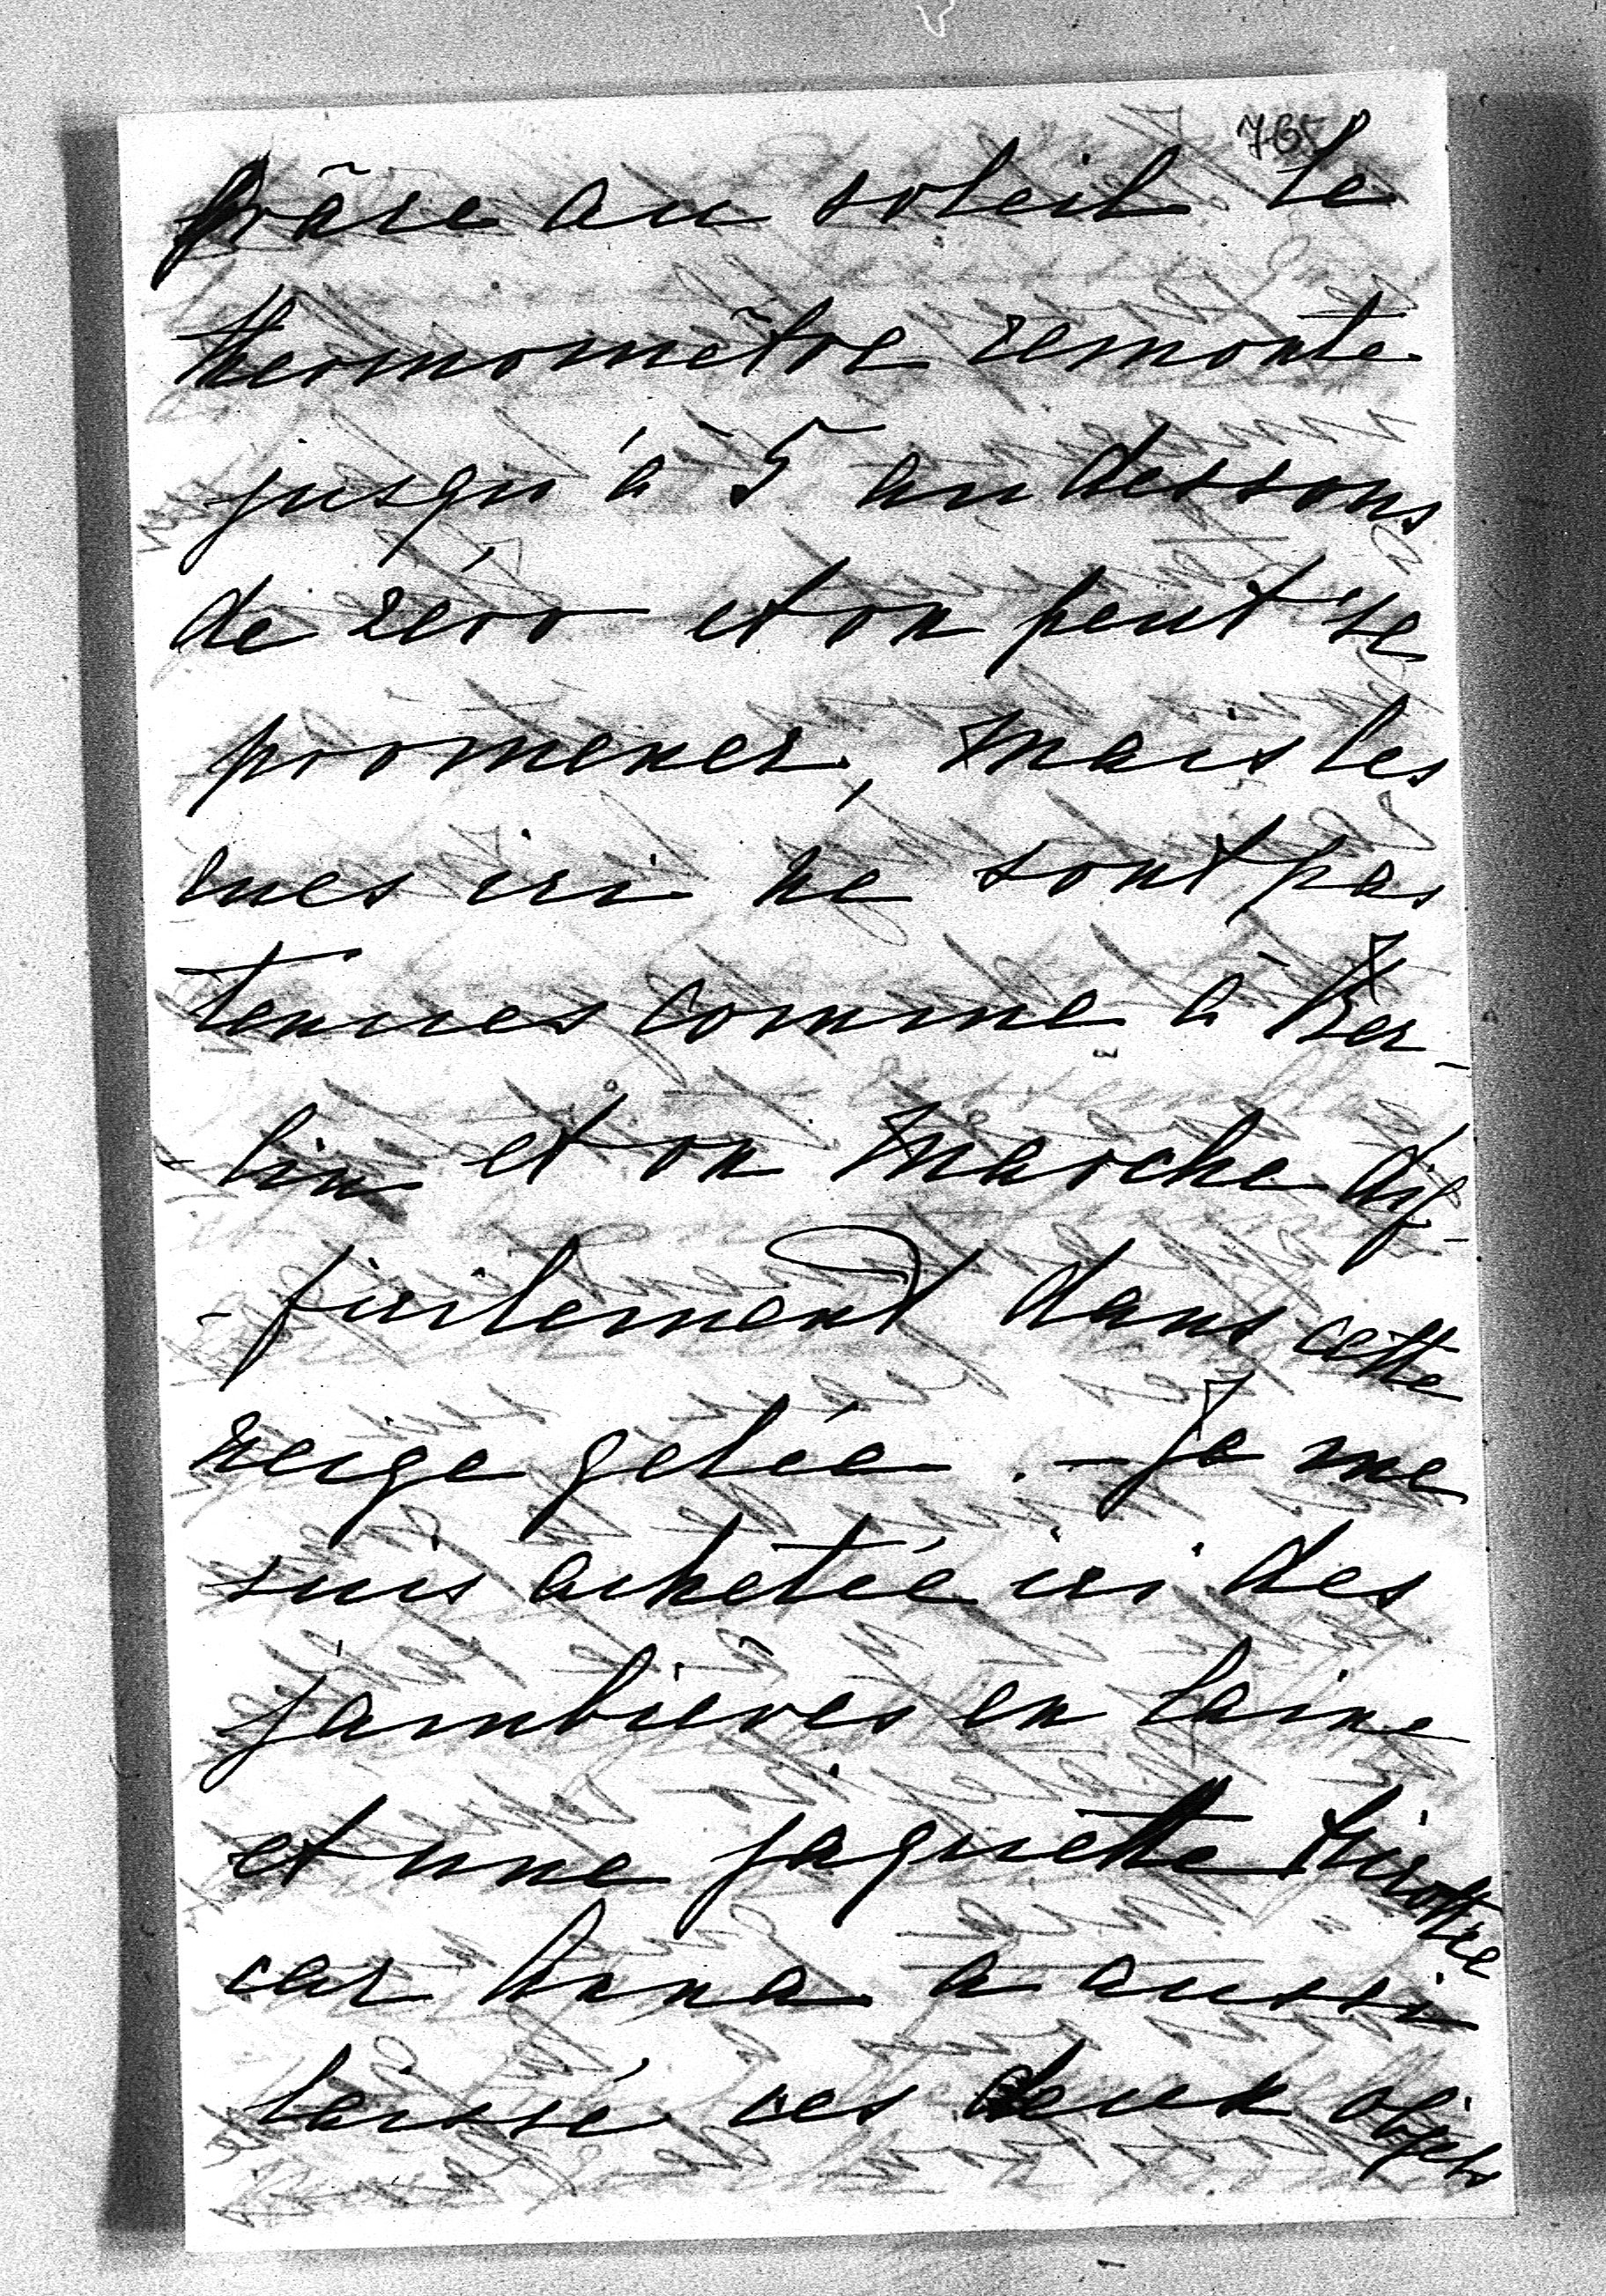 765
grâce au soleil le
thermomètre remonte
jusqu'à 5 au dessous
de zéro et on peut se
promener, mais les
rues ici ne sont pas
tenues comme à Ber-
-lin et on marche dif-
-ficilement dans cette
neige gelée. - Je me
suis achetée ici des
jambières en laine
et une jaquette tricottée
car Anna a aussi
laissé ces deux objets